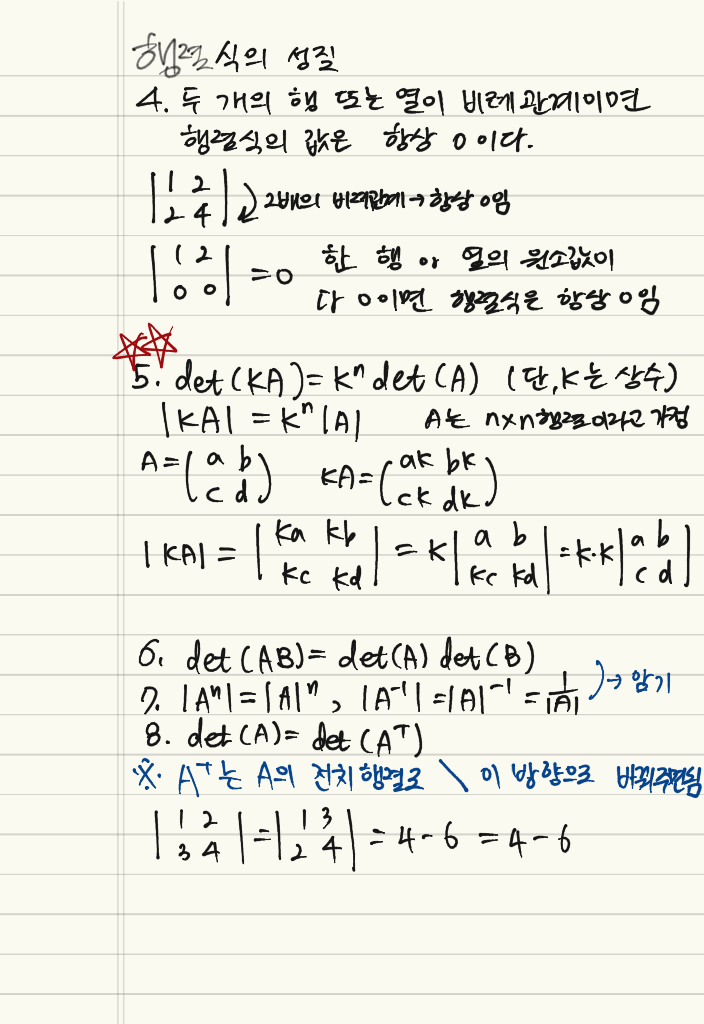 행렬식의 성질
4. 두 개의 행 또는 열이 비례관계이면
행렬식의 값은 항상 0이다.
|1 2|
|2 4| 2배의 비례관계→항상 0임
|1 2|
|0 0| =0 한 행 or 열의 원소값이
다 0이면 행렬식은 항상 0임
5. det(KA)=Kⁿdet(A) (단, K는 상수)
|KA| = Kⁿ|A| A는 n×n행렬이라고 가정
A=(a b) KA=(ak bk)
(c d) (ck dk)
|KA| = |ka kb| = K|a b| =k·k|a b|
|kc kd| |kc kd| |c d|
6. det(AB)= det(A) det(B)
7. |Aⁿ|=|A|ⁿ, |A⁻¹|=|A|⁻¹=1/|A| → 암기
8. det(A)= det(Aᵀ)
※. Aᵀ는 A의 전치행렬로 \ 이 방향으로 바꿔주면됨
|1 2| = |1 3| = 4-6 = 4-6
|3 4| |2 4|